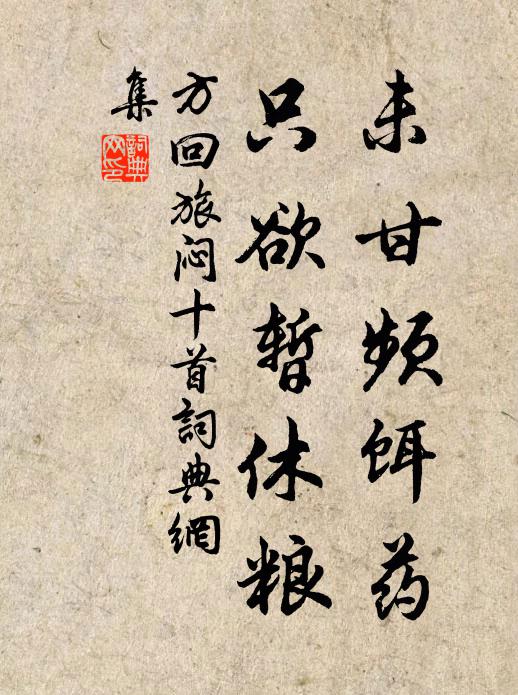 未甘频饵药
只欲暂休粮
方回旅闷十首詞典網
集
詞典
网印